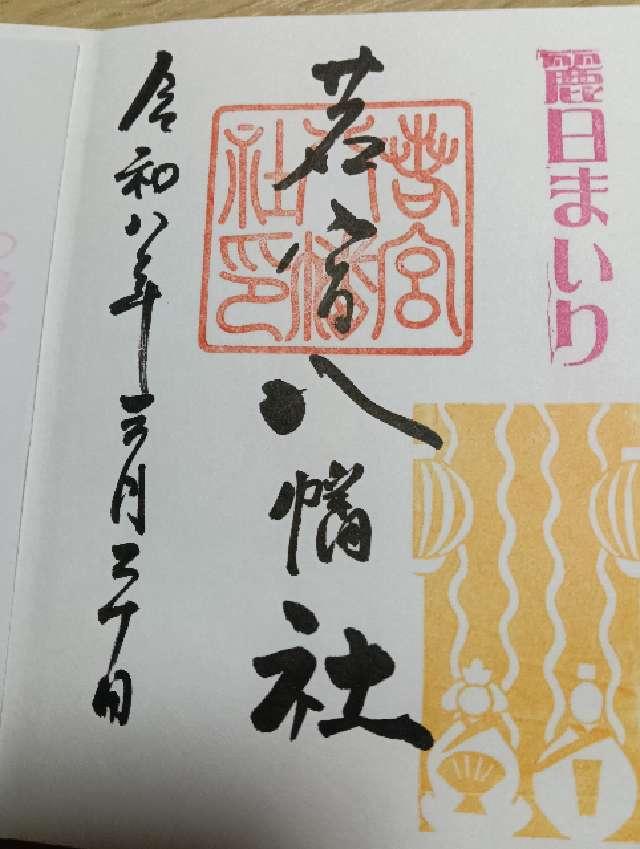 麗日まいり
若宮八幡社
若宮八幡社印
令和八年三月三十日